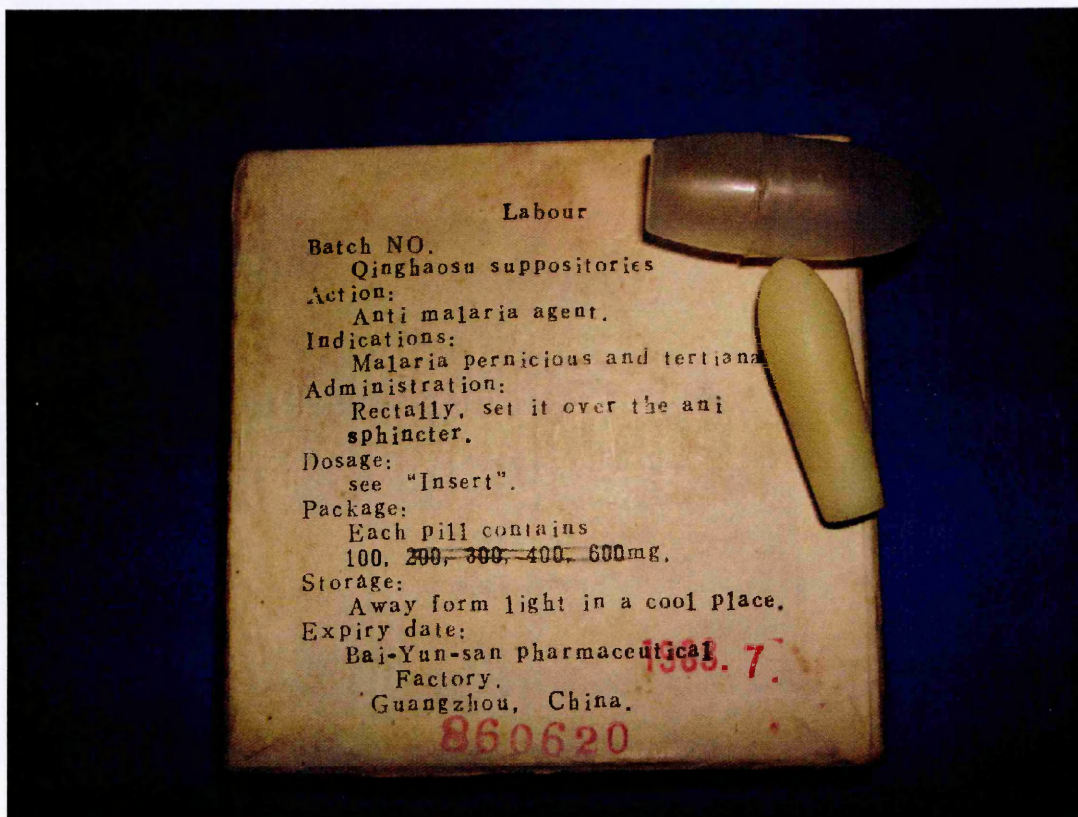 Labour
Batch NO.
Qinghaosu suppositories
Action:
Anti malaria agent.
Indications:
Malaria pernicious and tertiana
Administration:
Rectally, set it over the ani
sphincter.
Dosage:
see "Insert".
Package:
Each pill contains
100, 200, 300, 400, 600mg.
Storage:
Away form light in a cool place.
Expiry date:
Bai-Yun-san pharmaceutical
1988.7.
Factory,
Guangzhou, China.
860620